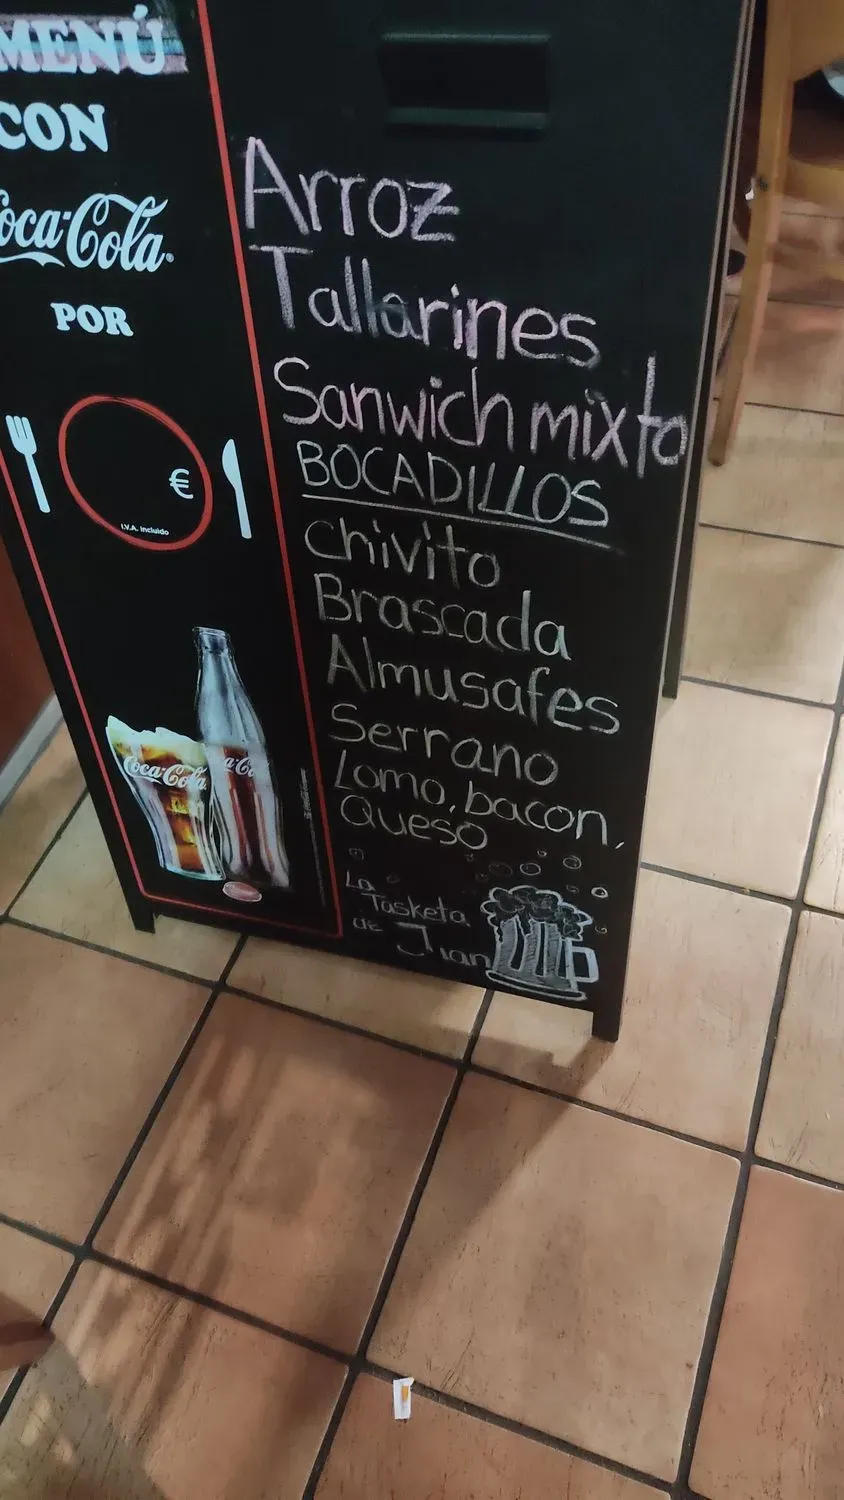 MENÚ
CON
Coca-Cola
POR
€
I.V.A. incluido
Coca-Cola
Arroz
Tallarines
Sanwich mixto
BOCADILLOS
Chivito
Brascada
Almusafes
Serrano
Lomo, bacon,
Queso
La
Tasketa
DE Jian